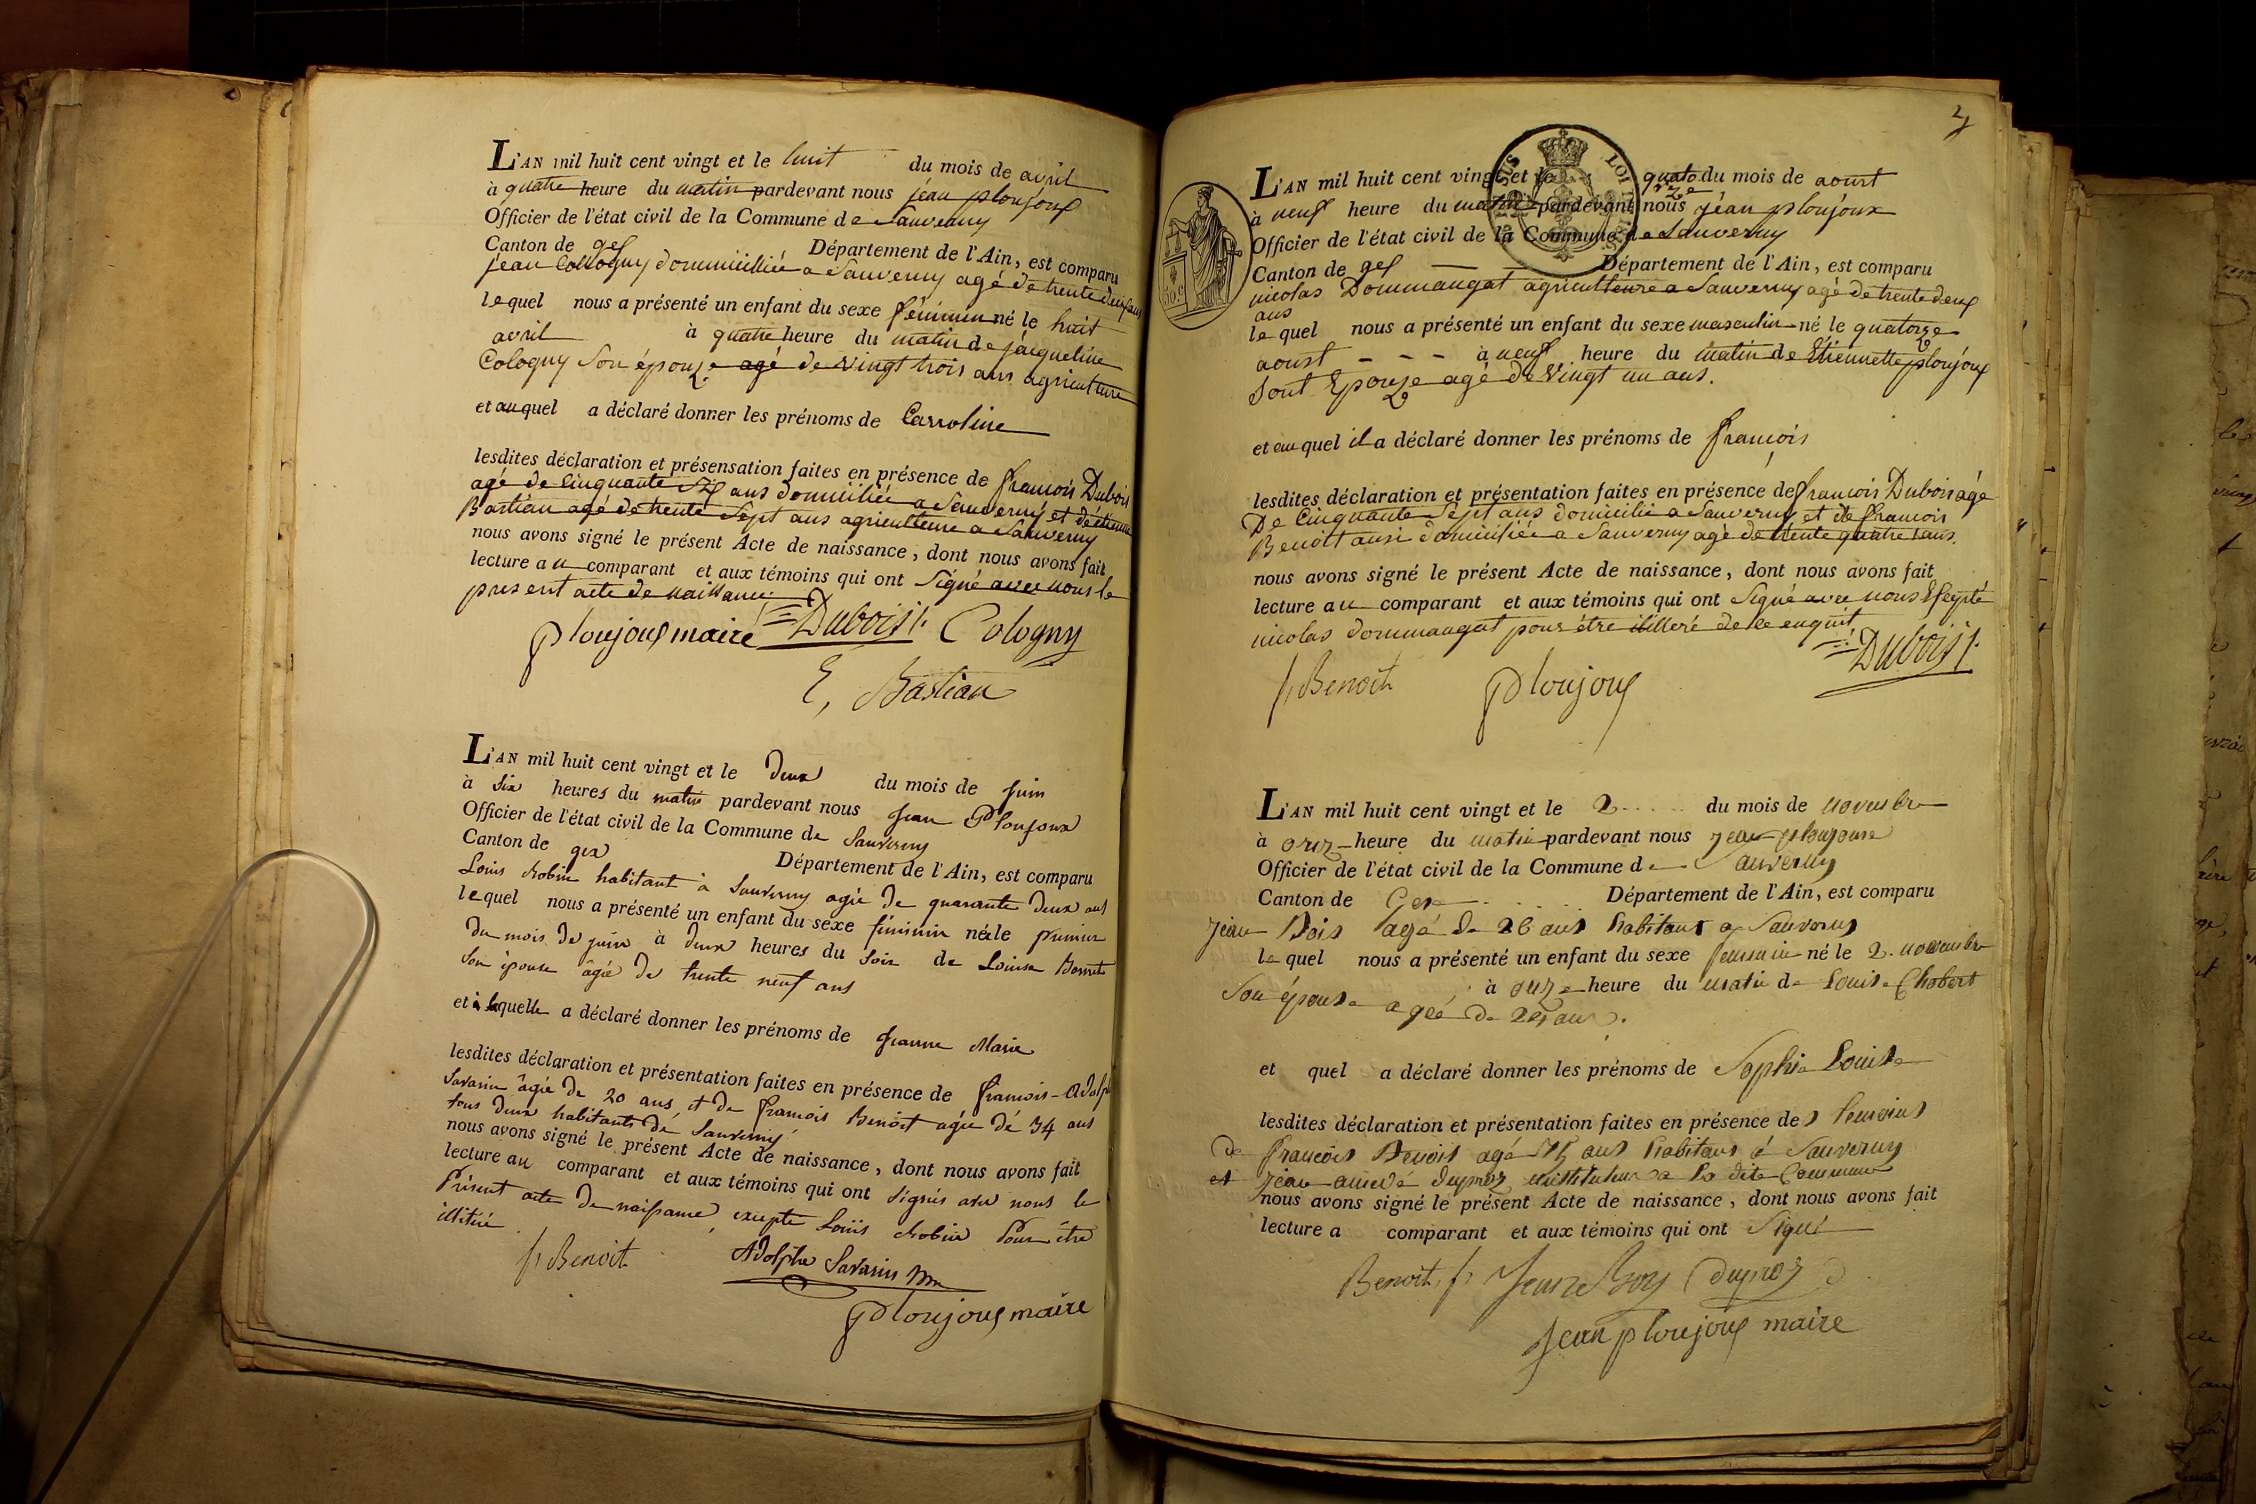 L'AN mil huit cent vingt et le huit du mois de avril
à quatre heure du matin pardevant nous jéan ploujoux
Officier de l'état civil de la Commune de Sauverny
Canton de gex Département de l'Ain, est comparu
jéan Collogny domicilliée a Sauverny agé de trente deux ans
lequel nous a présenté un enfant du sexe féminin né le huit
avril à quatre heure du matin de jacqueline
Cologny Son épouze agé de vingt trois ans agriculture
et auquel a déclaré donner les prénoms de Carroline
lesdites déclaration et présensation faites en présence de francois Dubois
agé de Cinquante ans domiciliée a Sauverny et détienne
Bastian agé de trente Sept ans agriculteure a Sauverny
nous avons signé le présent Acte de naissance, dont nous avons fait
lecture au comparant et aux témoins qui ont Signé avec nous le
present acte de naissance
ploujoux maire Dubois f. Cologny
E, Bastian
L'AN mil huit cent vingt et le deux du mois de juin
à Six heures du matin pardevant nous Jean Ploujoux
Officier de l'état civil de la Commune de Sauverny
Canton de gex Département de l'Ain, est comparu
Louis Robin habitant à Sauverny agée de quarante deux ans
lequel nous a présenté un enfant du sexe féminin née le premier
du mois de juin à deux heures du Soir de Louise
Son épouse âgée de trente neuf ans
et à laquelle a déclaré donner les prénoms de Jeanne Marie
lesdites déclaration et présentation faites en présence de francois-Adolphe
Savarin âgée de 20 ans, et de francois Benoit agée de 34 ans
tous deux habitants de Sauverny
nous avons signé le présent Acte de naissance, dont nous avons fait
lecture au comparant et aux témoins qui ont Signés avec nous le
Présent acte de naissance, excepté Louis Robin Pour être
illitéré
f. Benoit Adolphe Savarin
Ploujoux maire
3
L'AN mil huit cent vingt et le quatorze du mois de aoust
à neuf heure du matin pardevant nous jéan ploujoux
Officier de l'état civil de la Commune de Sauverny
Canton de gex Département de l'Ain, est comparu
nicolas Dommangat agriculteure a Sauverny agé de trente deux
ans
lequel nous a présenté un enfant du sexe masculin né le quatorze
aoust - - - à neuf heure du matin de Etiennette ploujoux
Sont Epouze agé de Vingt un ans.
et auquel il a déclaré donner les prénoms de françois
lesdites déclaration et présentation faites en présence de francois Dubois agé
De Cinquante Sept ans domicilié a Sauverny et de francois
Benoit ausi domiciliée a Sauverny agé de trente quatre ans.
nous avons signé le présent Acte de naissance, dont nous avons fait
lecture au comparant et aux témoins qui ont Signé avec nous Exepté
nicolas dommangat pour être illeré de ce enquit
Dubois f.
f. Benoit Ploujoux
L'AN mil huit cent vingt et le 2 du mois de novembre
à onze heure du matin pardevant nous Jean ploujoux
Officier de l'état civil de la Commune de Sauverny
Canton de Gex Département de l'Ain, est comparu
Jean Bois agé de 26 ans habitant a Sauverny
lequel nous a présenté un enfant du sexe feminin né le 2 novembre
à onze heure du matin de Louise Chobert
Son épouse agée de ans.
et quel a déclaré donner les prénoms de Sophie Louise
lesdites déclaration et présentation faites en présence des temoins
de francois Benoit agé ans habitant à Sauverny
et Jean duproz instituteur a la dite Commune
nous avons signé le présent Acte de naissance, dont nous avons fait
lecture a comparant et aux témoins qui ont Signé
Benoit f. Jean Bois duproz
Jean ploujoux maire